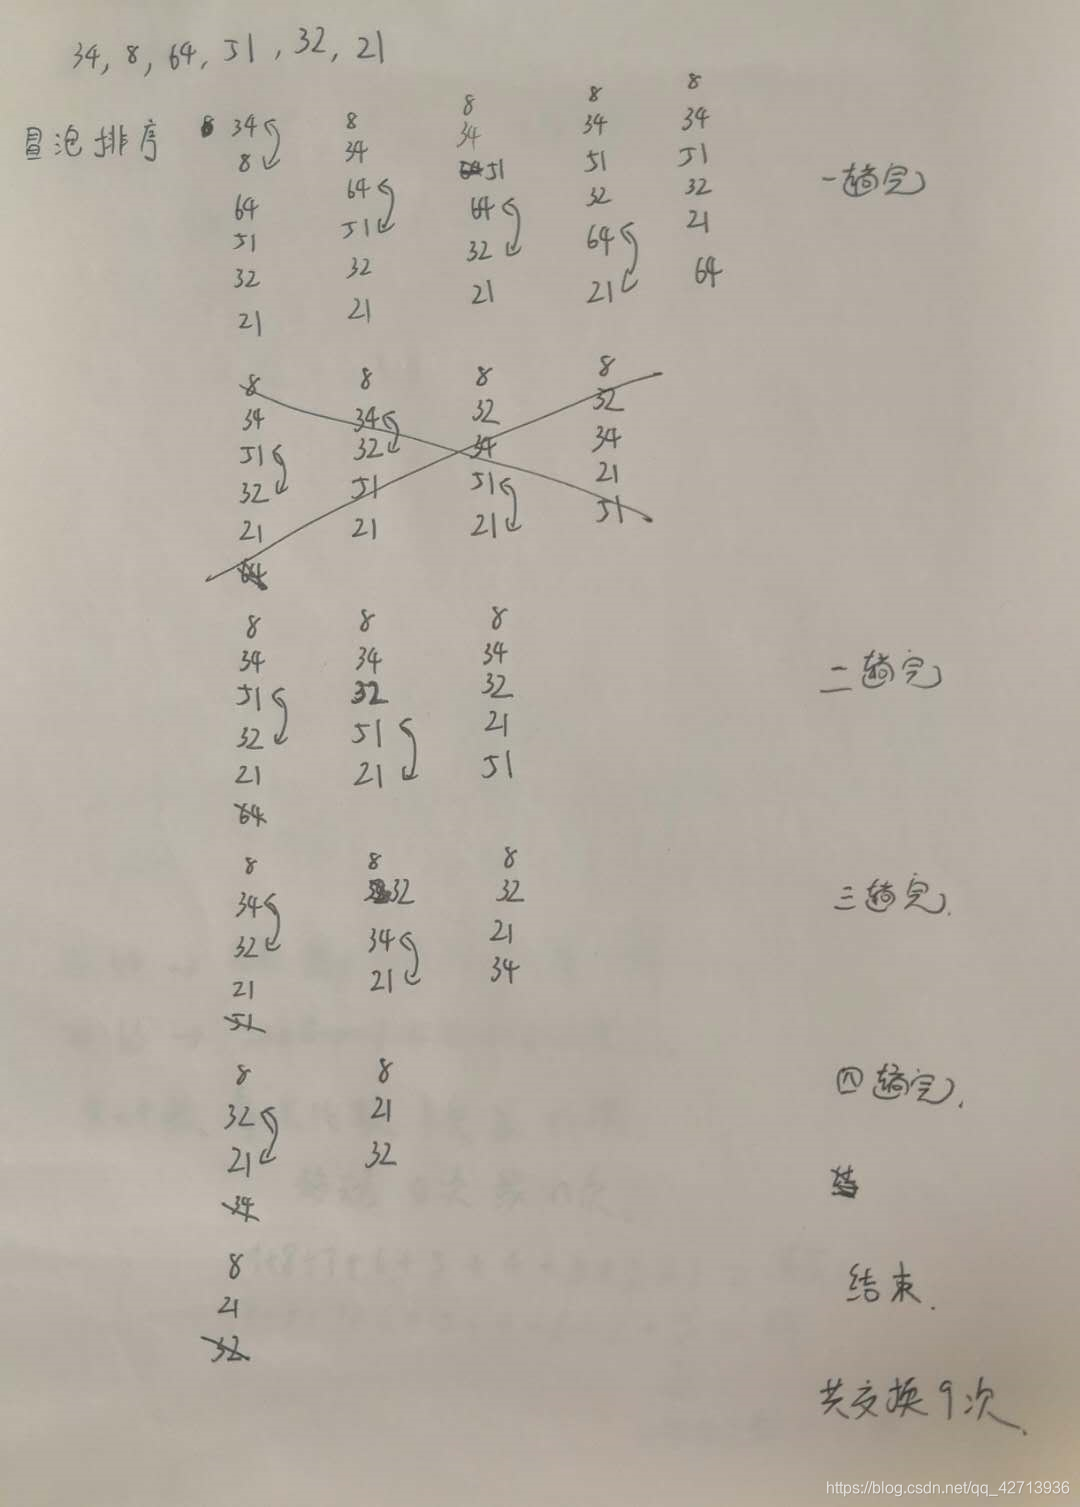 34, 8, 64, 51, 32, 21
冒泡排序
34 8 8 8 8
8 34 34 34 34
64 64 51 51 51
51 51 64 32 32
32 32 32 64 21
21 21 21 21 64
一趟完
8 8 8 8
34 34 32 32
51 32 34 34
32 51 51 21
21 21 21 51
64
8 8 8
34 34 34
51 32 32
32 51 21
21 21 51
64
二趟完
8 8 8
34 32 32
32 34 21
21 21 34
51
三趟完.
8 8
32 21
21 32
34
四趟完.
8
21
32
结束.
共交换9次.
https://blog.csdn.net/qq_42713936